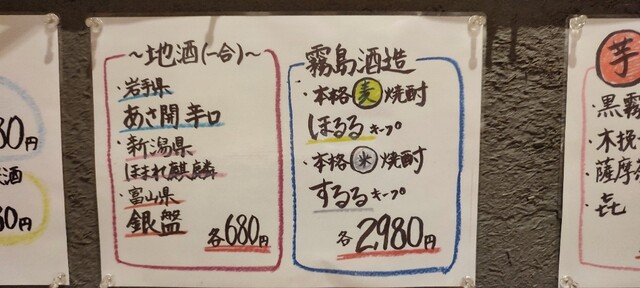 30円
酒
60円
~地酒(一合)~
・岩手県
あさ開 辛口
・新潟県
ほまれ麒麟
・富山県
銀盤
各680円
霧島酒造
・本格麦焼酎
ほろるキープ
・本格米焼酎
するるキープ
各2980円
芋
・黒霧
・木挽
・薩摩
・㐂